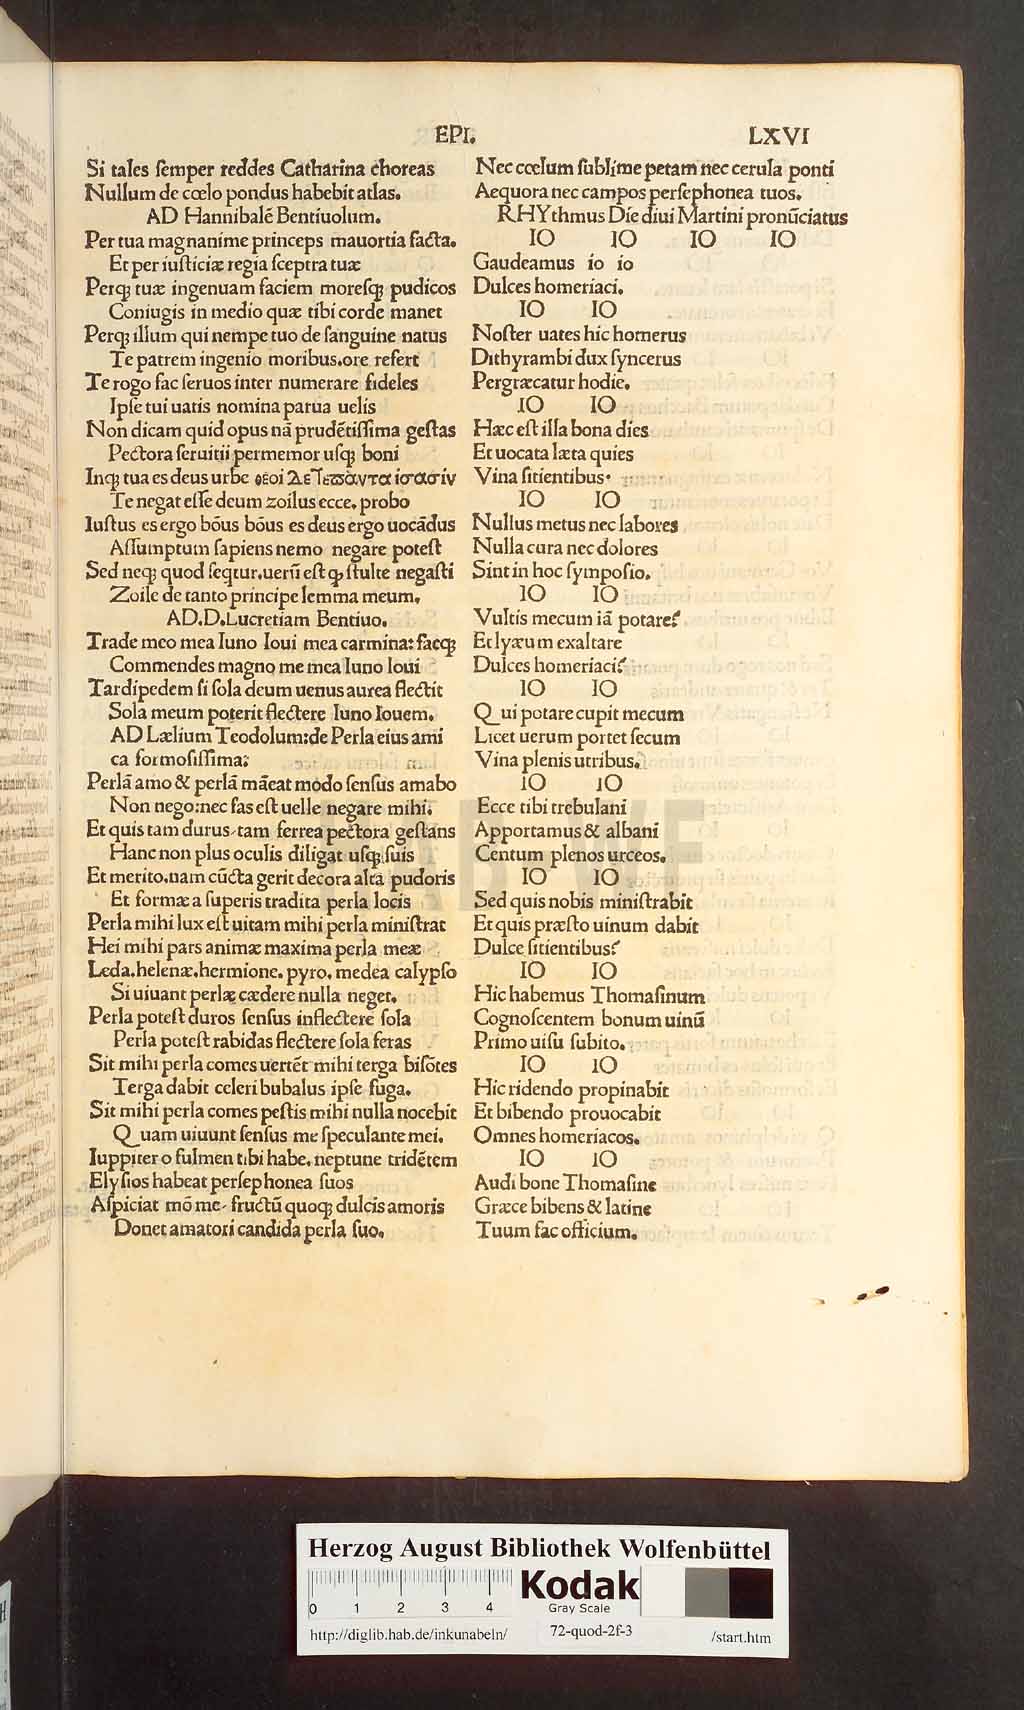 EPI. LXVI
Si tales semper reddes Catharina choreas
Nullum de cœlo pondus habebit atlas.
AD Hannibalē Bentiuolum.
Per tua magnanime princeps mauortia facta.
Et per iusticiæ regia sceptra tuæ
Perq; tuæ ingenuam faciem moresq; pudicos
Coniugis in medio quæ tibi corde manet
Perq; illum qui nempe tuo de sanguine natus
Te patrem ingenio moribus.ore refert
Te rogo fac seruos inter numerare fideles
Ipse tui uatis nomina parua uelis
Non dicam quid opus nā prudētissima gestas
Pectora seruitii permemor usq; boni
Inq; tua es deus urbe θεοὶ Δε Τε πὰντα ἰσασίν
Te negat esse deum zoilus ecce. probo
Iustus es ergo bōus bōus es deus ergo uocādus
Assumptum sapiens nemo negare potest
Sed neq; quod seqtur.uerū est q stulte negasti
Zoile de tanto principe lemma meum.
AD.D.Lucretiam Bentiuo.
Trade meo mea Iuno Ioui mea carmina: facq;
Commendes magno me mea Iuno Ioui
Tardipedem si sola deum uenus aurea flectit
Sola meum poterit flectere Iuno Iouem.
AD Lælium Teodolum:de Perla eius ami
ca formosissima:
Perlā amo & perlā māeat modo sensus amabo
Non nego:nec fas est uelle negare mihi.
Et quis tam durus, tam ferrea pectora gestans
Hanc non plus oculis diligat usq; suis
Et merito.nam cūcta gerit decora alta pudoris
Et formæ a superis tradita perla locis
Perla mihi lux est uitam mihi perla ministrat
Hei mihi pars animæ maxima perla meæ
Leda.helenæ.hermione. pyro. medea calypso
Si uiuant perlæ cædere nulla neget.
Perla potest duros sensus inflectere sola
Perla potest rabidas flectere sola feras
Sit mihi perla comes uertēt mihi terga bisōtes
Terga dabit celeri bubalus ipse fuga.
Sit mihi perla comes pestis mihi nulla nocebit
Quam uiuunt sensus me speculante mei.
Iuppiter o fulmen tibi habe. neptune tridētem
Elysios habeat persephonea suos
Aspiciat mō me, fructū quoq; dulcis amoris
Donet amatori candida perla suo.
Nec cœlum sublime petam nec cerula ponti
Aequora nec campos persephonea tuos.
RHYthmus Die diui Martini pronūciatus
IO IO IO IO
Gaudeamus io io
Dulces homeriaci.
IO IO
Noster uates hic homerus
Dithyrambi dux syncerus
Pergræcatur hodie.
IO IO
Hæc est illa bona dies
Et uocata læta quies
Vina sitientibus.
IO IO
Nullus metus nec labores
Nulla cura nec dolores
Sint in hoc symposio.
IO IO
Vultis mecum iā potare?
Et lyæum exaltare
Dulces homeriaci?
IO IO
Qui potare cupit mecum
Licet uerum portet secum
Vina plenis utribus.
IO IO
Ecce tibi trebulani
Apportamus & albani
Centum plenos urceos.
IO IO
Sed quis nobis ministrabit
Et quis præsto uinum dabit
Dulce sitientibus?
IO IO
Hic habemus Thomasinum
Cognoscentem bonum uinū
Primo uisu subito.
IO IO
Hic ridendo propinabit
Et bibendo prouocabit
Omnes homeriacos.
IO IO
Audi bone Thomasine
Græce bibens & latine
Tuum fac officium.
HAB WF
Herzog August Bibliothek Wolfenbüttel
0 1 2 3 4
Kodak
Gray Scale
http://diglib.hab.de/inkunabeln/ 72-quod-2f-3 /start.htm